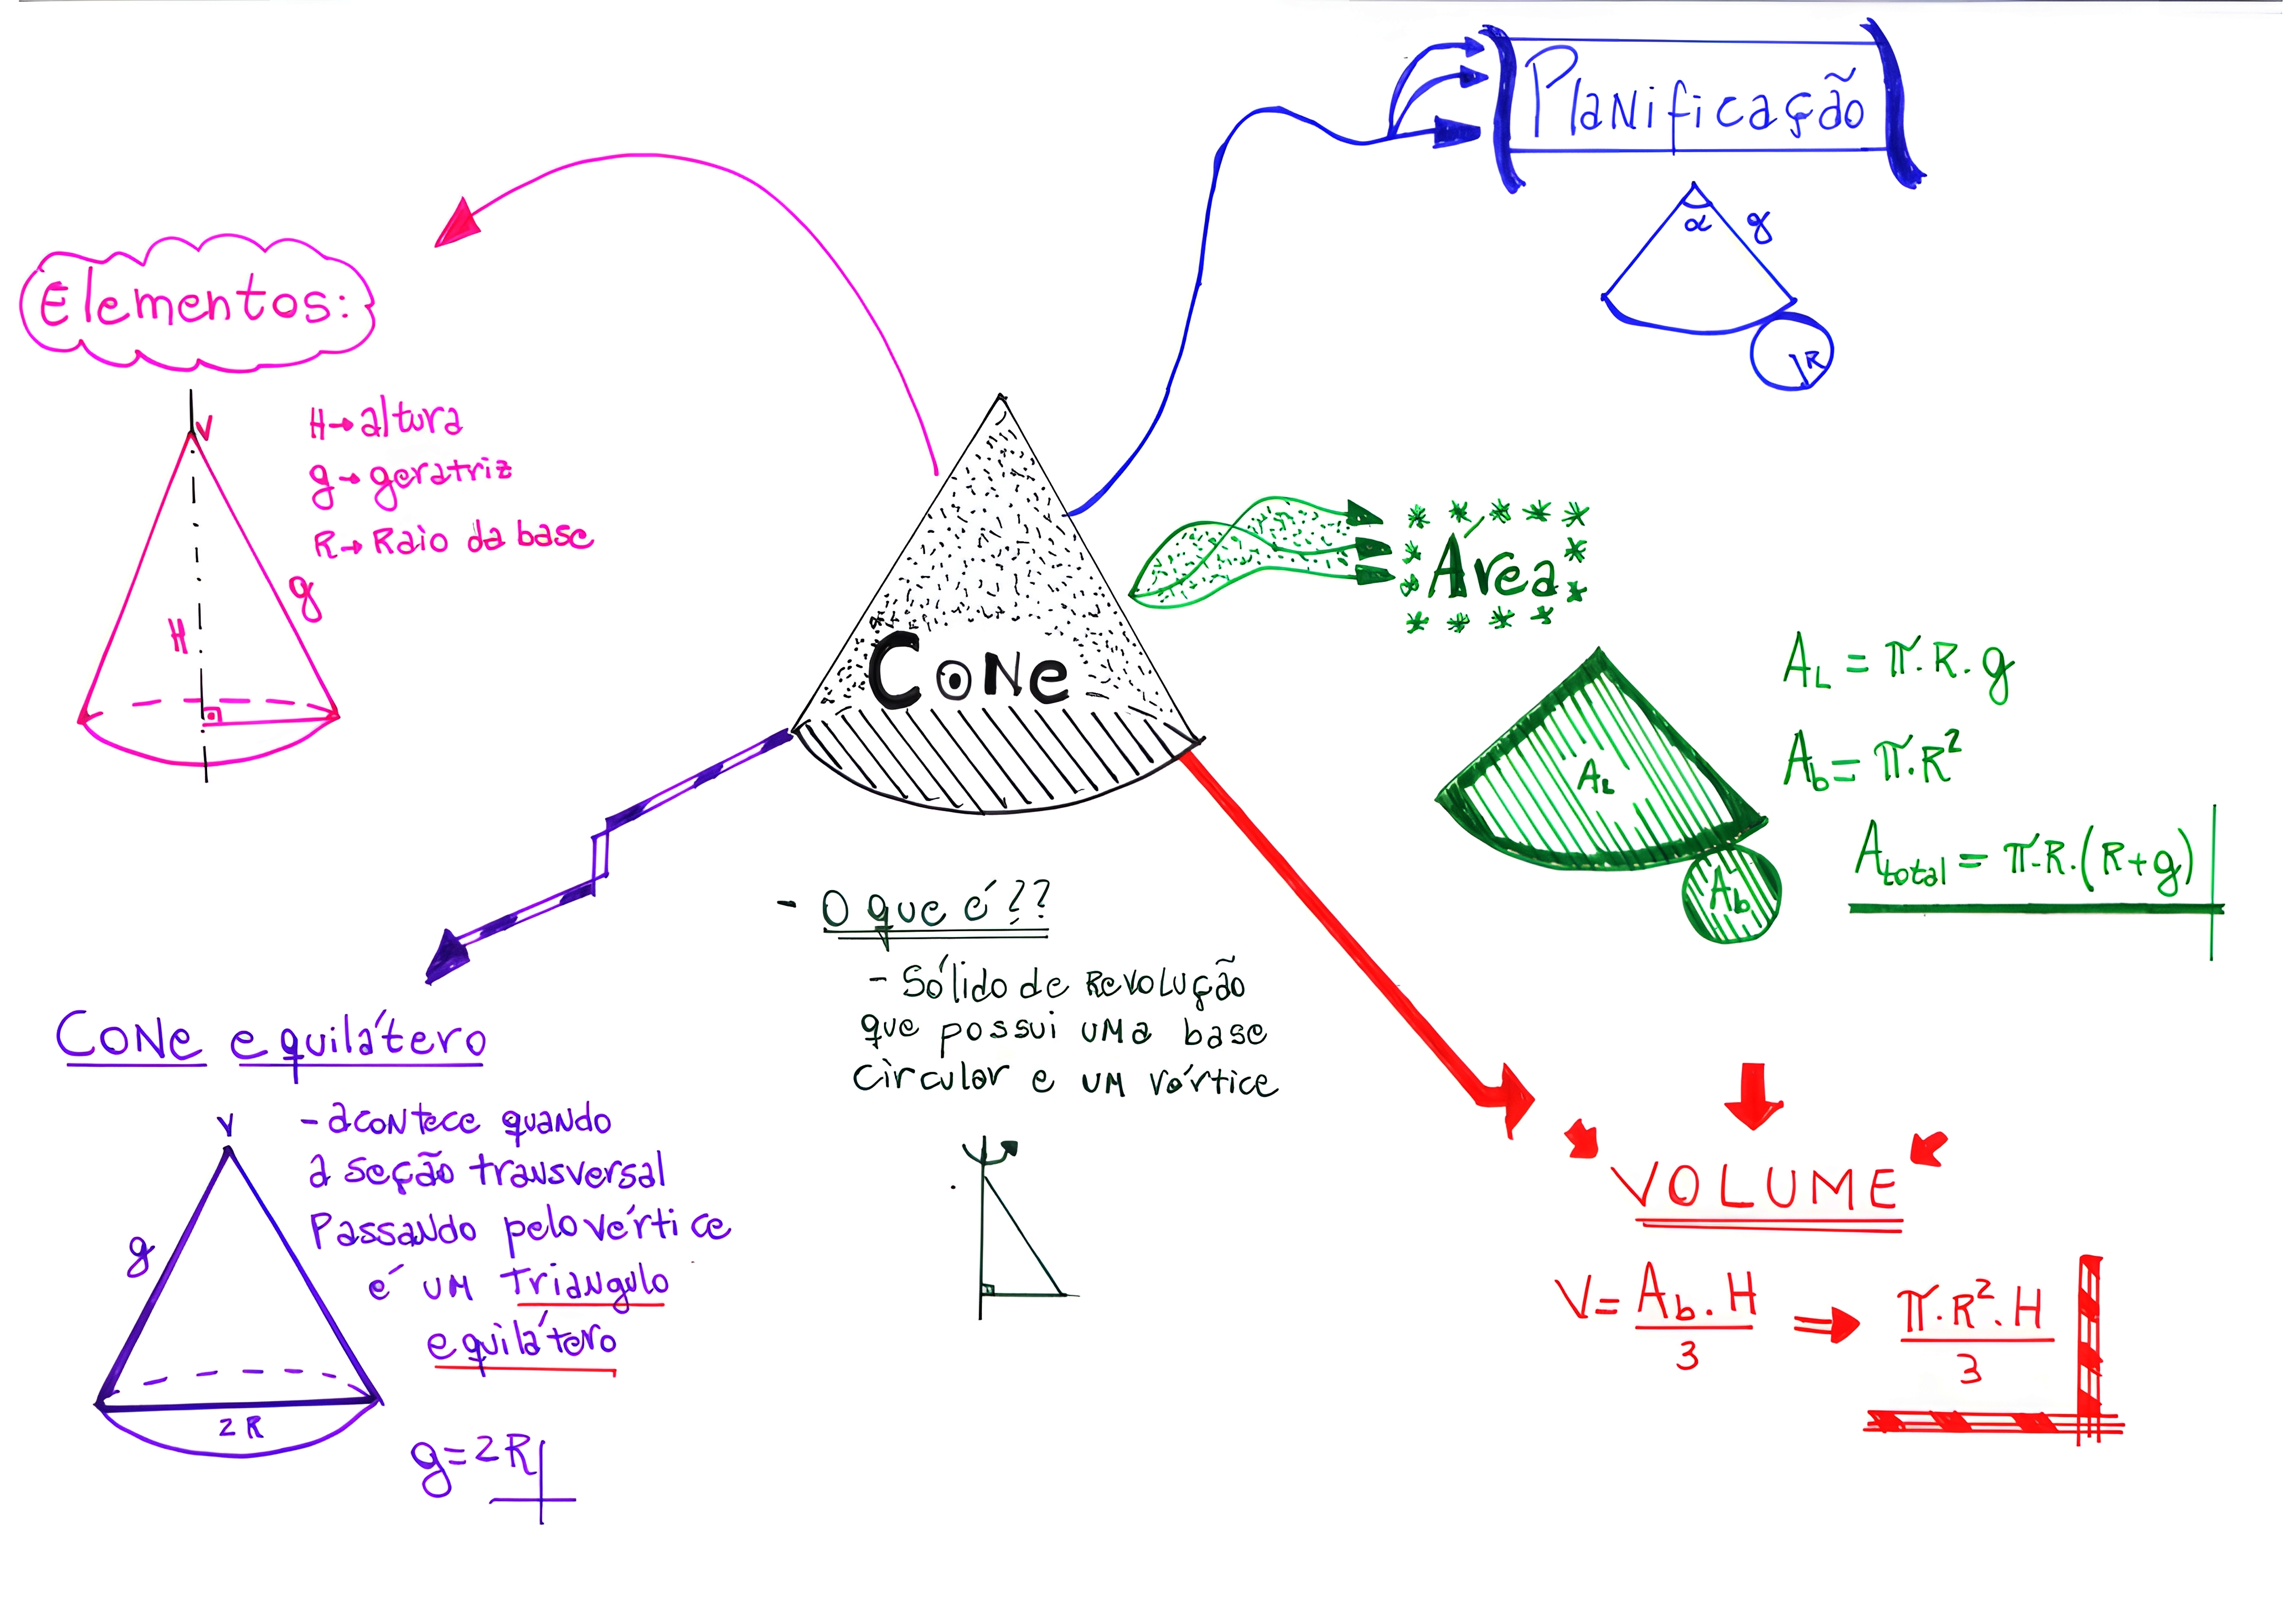 Planificação
α
g
R
Elementos:
V
H
g
H→altura
g→geratriz
R→Raio da base
Cone
Área
AL
Ab
AL = π.R.g
Ab = π.R²
Atotal = π.R.(R+g)
- O que é??
- Sólido de Revolução
que possui uma base
circular e um vértice
Cone equilátero
V
g
2R
- acontece quando
a seção transversal
Passando pelo vértice
é um triangulo
equilátero
g=2R
VOLUME
V= Ab.H/3 ⇒ π.R².H/3